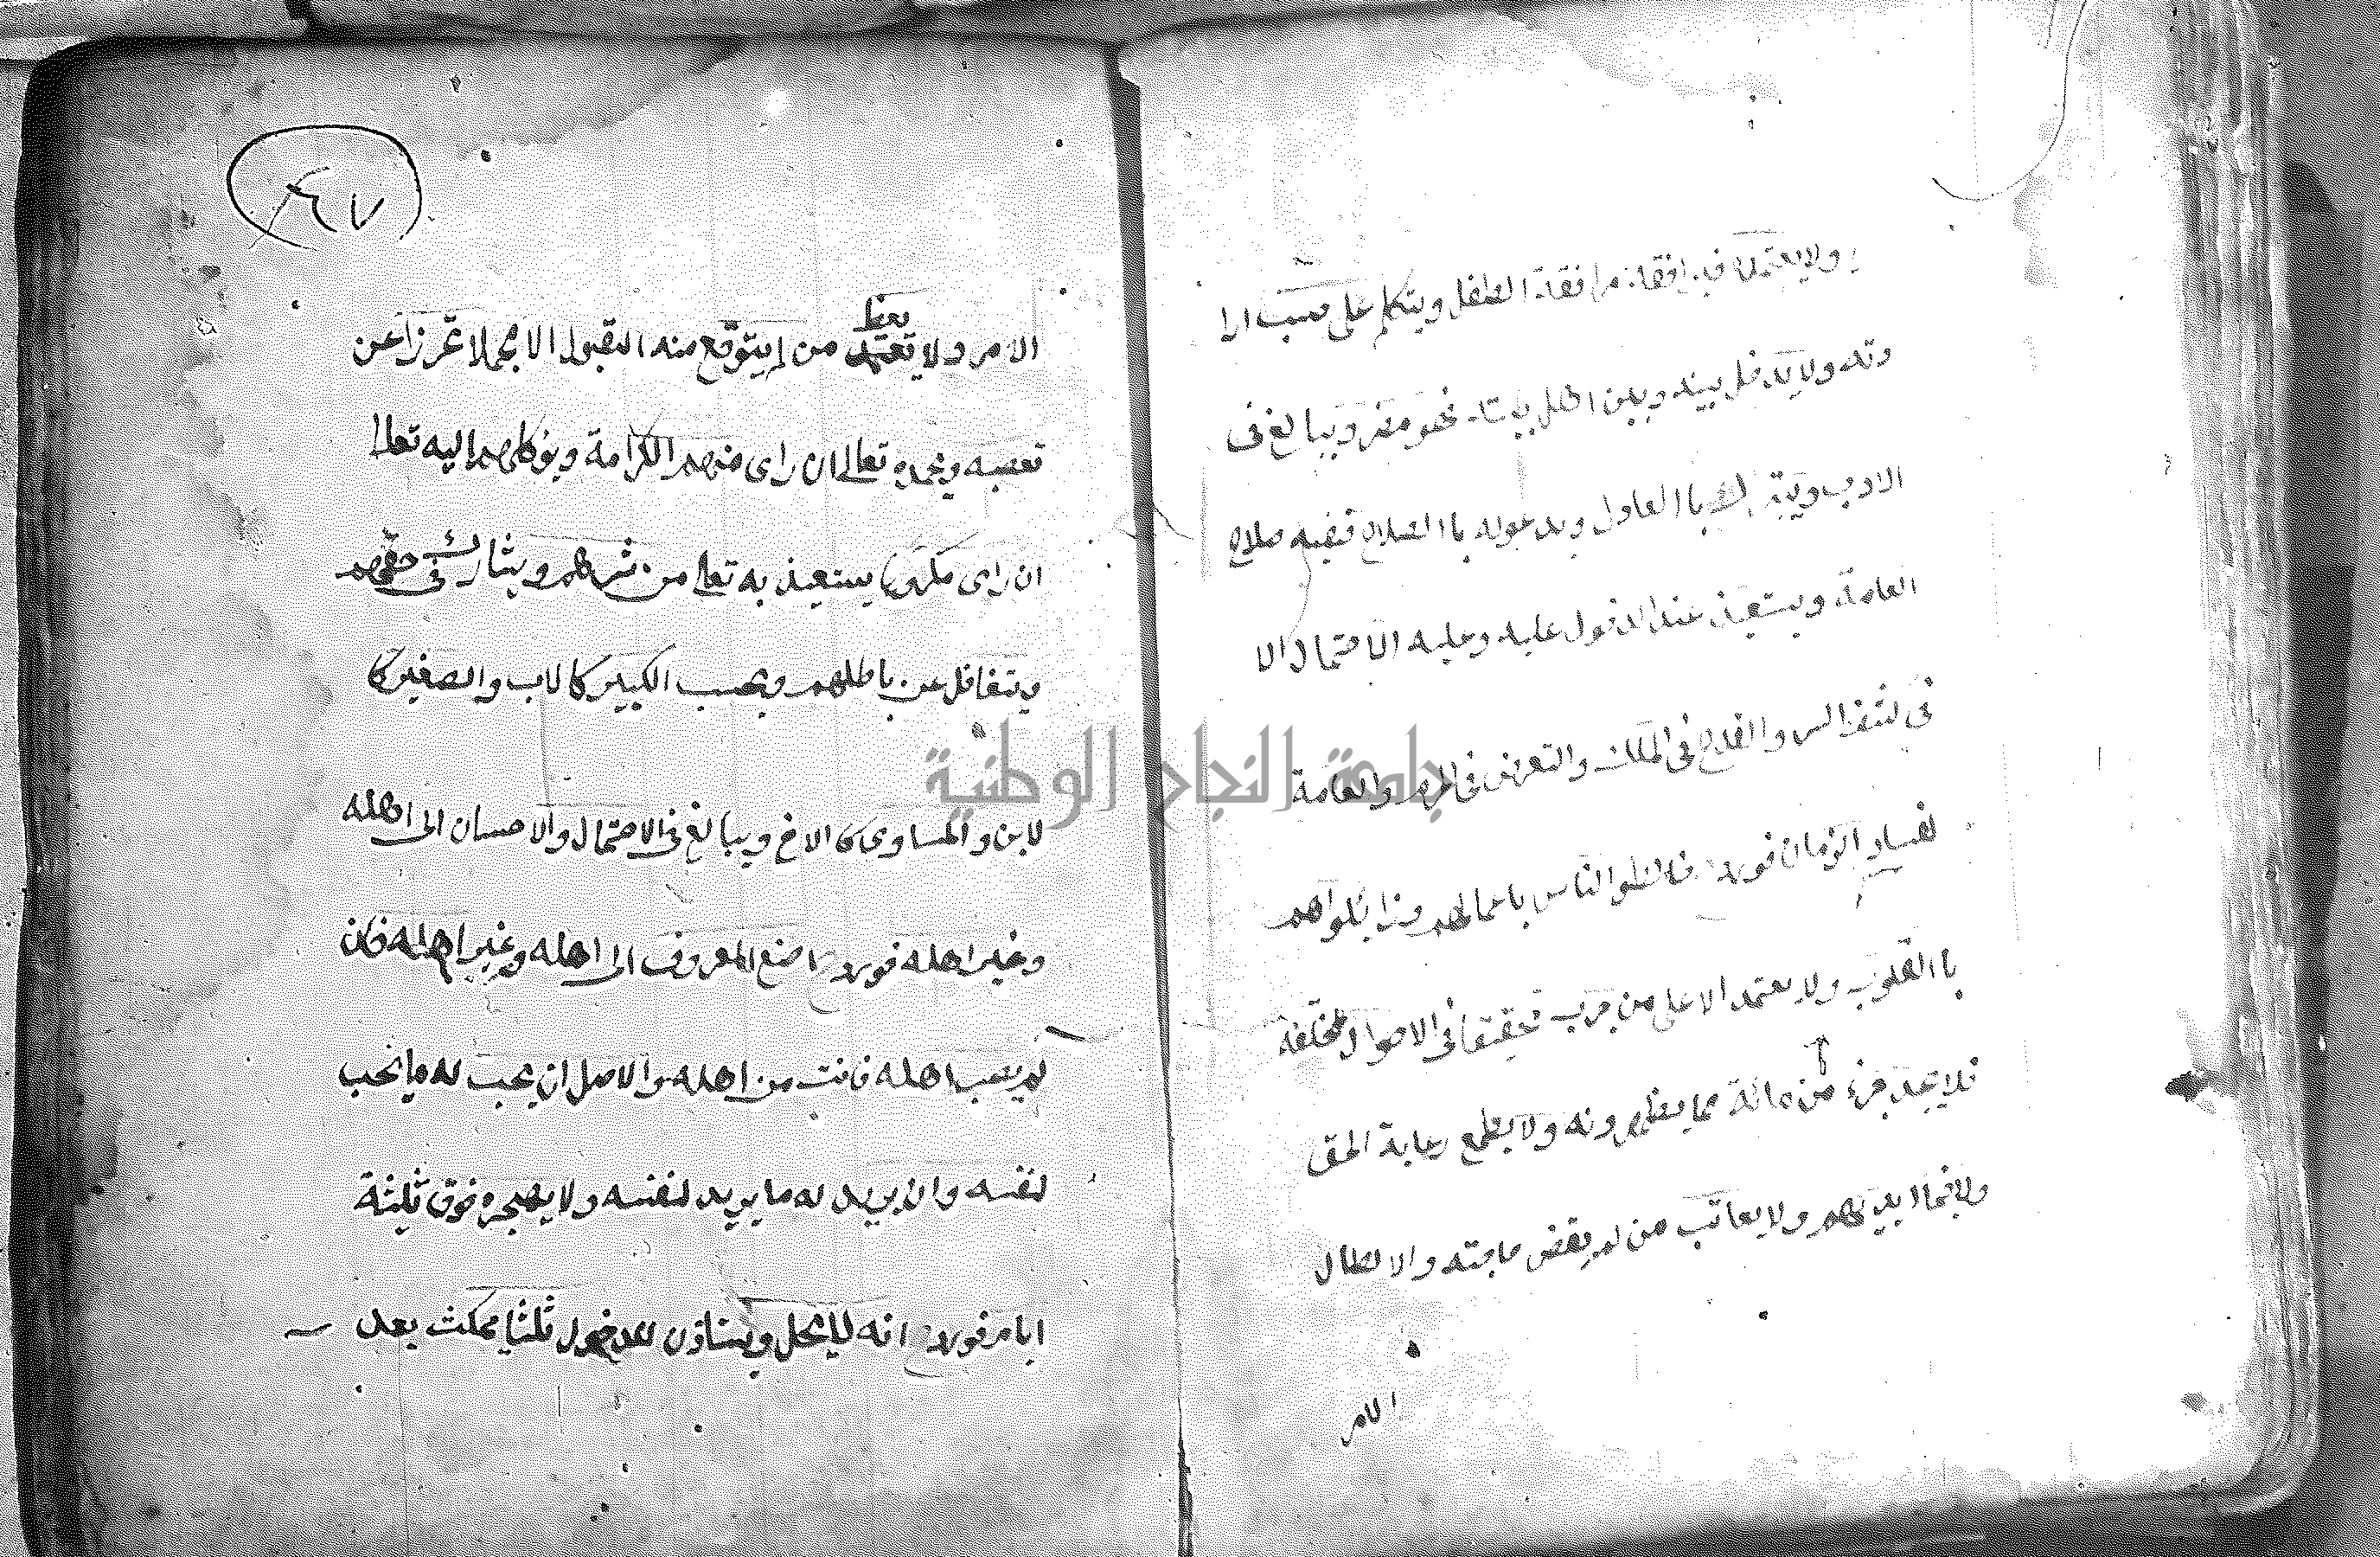 ولا يعتمد فيرافقه مرافقة الطفل ويتكلم على حسب ارا
دته ولا يدخل بينه وبين اهل بيته نحو مفر ويبالغ فى
الادب ويتبرك با العادل ويدعوله با الصلاح ففيه صلاح
العامة ويستعيذ عند الدخول عليه وعليه الاحتمال الا
فى كشف السر والقدح فى الملك والتعرض فى الحرم والعامة
لفساد الزمان فورد خالطوا الناس باعمالهم وزايلواهم
با القلوب ولا يعتمد الا على من جرب تحقيقا فى الاحوال المختلفة
فلا تجد جزء من مائة مما يظهرونه ولا يطمع رعاية الحق
ولا فيما ايديهم ولا يعاتب من لم يقض حاجته والا لطال
الامر
٤٧
يعظ
الامر ولا من لم يتوقع منه القبول الا مجملا تحرزا عن
تعصبه ويحمده تعالى ان راى منهم الكرامة ويوكلهم اليه تعالى
ان راى مكروها يستعيذ به تعالى من شرهم ويشارك فى حقهم
ويتغافل عن باطلهم ويحسب الكبير كالاب والصغير كا
لابن والمساوى كا الاخ ويبالغ فى الاحتمال والاحسان الى اهله
وغير اهله فورد اصنع المعروف الى اهله وغير اهله فان
لم يصب اهله فانت من اهله والاصل ان يحب له ما يحب
لنفسه وان يريد له ما يريد لنفسه ولا يهجره فوق ثلثة
ايام فورد انه لا يحل ويستاذن للدخول ثلثا يمكث بعد
جامعة النجاح الوطنية